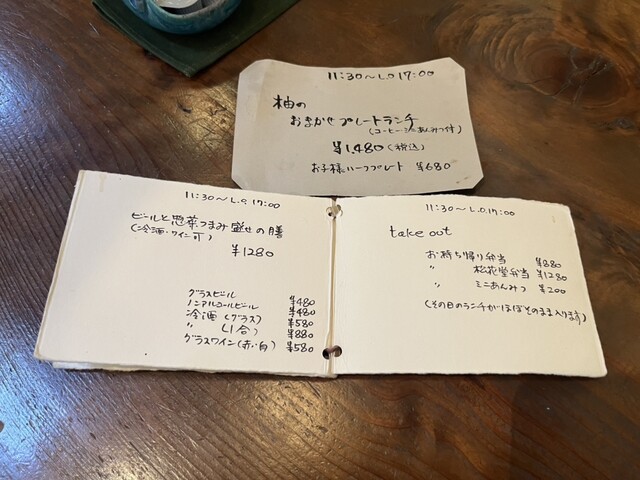 11:30～L.O 17:00
柚の
おまかせプレートランチ
(コーヒー・ミニあんみつ付)
¥1,480(税込)
お子様ハーフプレート ¥680
11:30～L.O.17:00
ビールと惣菜つまみ盛せの膳
(冷酒・ワイン可)
¥1280
グラスビール ¥480
ノンアルコールビール ¥480
冷酒(グラス) ¥580
〃 (1合) ¥880
グラスワイン(赤・白) ¥580
11:30～L.O.17:00
take out
お持ち帰り弁当 ¥880
〃 松花堂弁当 ¥1280
〃 ミニあんみつ ¥200
(その日のランチがほぼそのまま入ります)